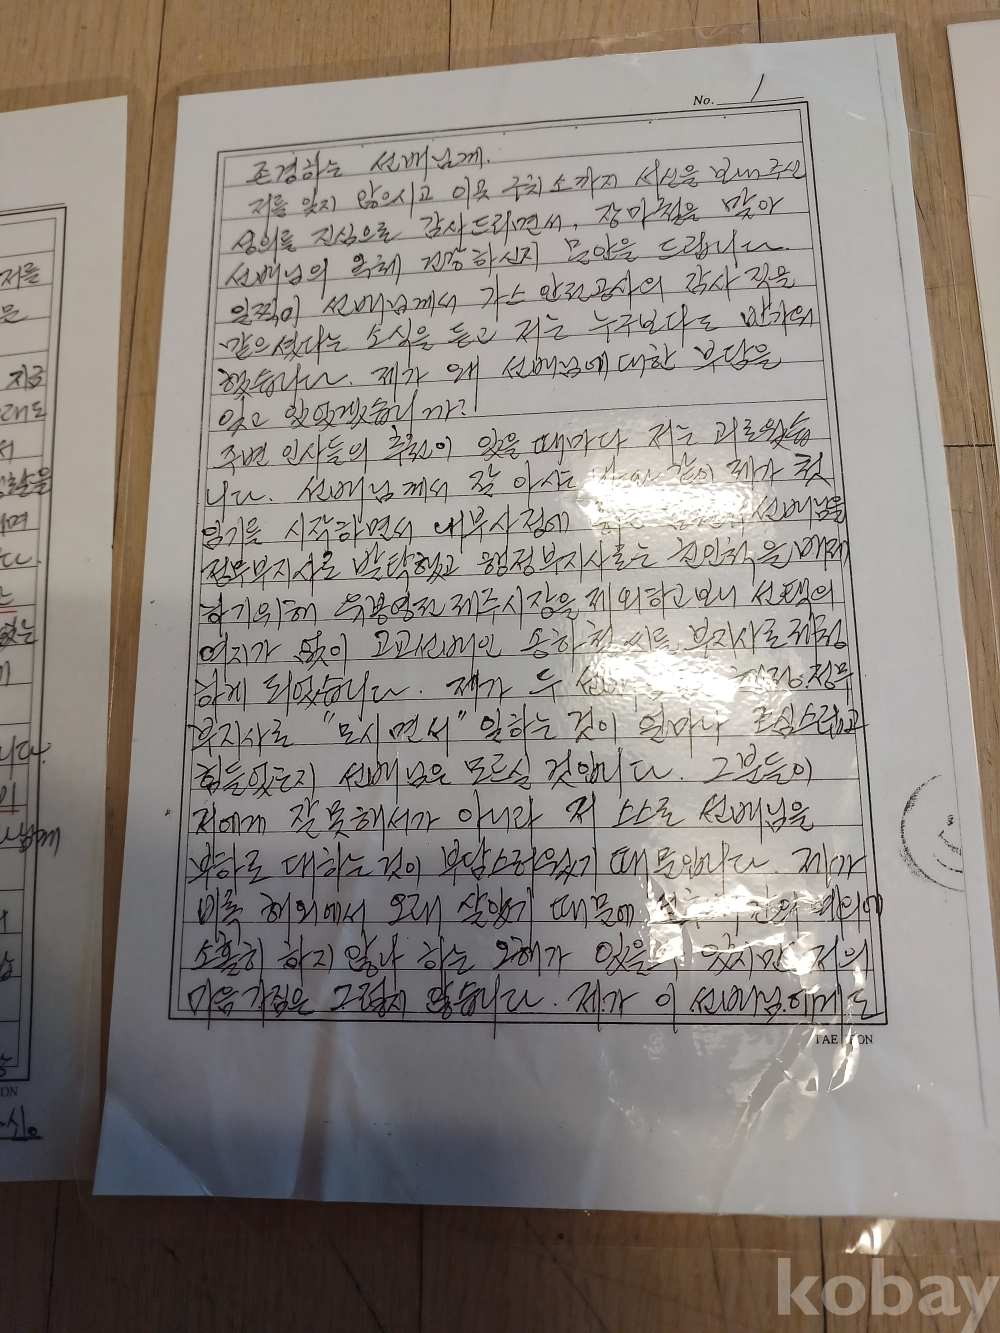 No. 1
존경하는 선배님께.
저를 잊지 않으시고 이곳 구치소까지 서신을 보내주신
성의를 진심으로 감사드리면서, 장마철을 맞아
선배님의 옥체 건강하신지 문안을 드립니다.
일찍이 선배님께서 가스안전공사의 감사직을
맡으셨다는 소식을 듣고 저는 누구보다도 반가워
했습니다. 제가 왜 선배님에 대한 부담을
잊고 있었겠습니까?
주변 인사들의 추천이 있을 때마다 저는 괴로웠습
니다. 선배님께서 잘 아시는 바와 같이 제가 첫
임기를 시작하면서 내부사정에 선배님을
정무부지사로 발탁했고 행정부지사로는 친인척을 배제
하기위해 전 제주시장을 제외하고보니 선택의
여지가 없이 고교선배인 씨를 부지사로 제청
하게 되었습니다. 제가 두 정무
부지사로 "모시면서" 일하는 것이 얼마나 조심스럽고
힘들었는지 선배님은 모르실 것입니다. 그분들이
저에게 잘 못해서가 아니라 저 스스로 선배님을
부하로 대하는 것이 부담스러웠기 때문입니다. 제가
비록 해외에서 오래 살았기 때문에 예의에
소홀히 하지 않나 하는 오해가 있을수 있지만 저의
마음가짐은 그렇지 않습니다. 제가 이 선배님에게도
TAE ON
저를
지금
래도
서
면
다.
없는
니다.
님께
ON
kobay